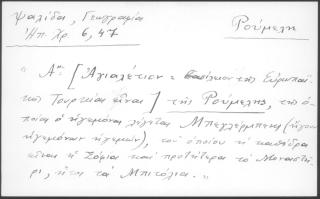 Ψαλίδα, Γεωγραφία
Ἠπ. Χρ. 6, 47
Ρούμελη
"Α<sup>ον</sup> [Ἀγιαλέτιον = βασίλειον τῆς Εὐρωπαϊ-
κῆς Τουρκίας εἶναι] τῆς Ρούμελης, τῆς ὁ-
ποίας ὁ ἡγεμόνας λέγεται Μπεγλέρμπεης (ἤγουν
ἡγεμόνων ἡγεμών), τοῦ ὁποίου ἡ καθέδρα
εἶναι ἡ Σόφια καὶ προτήτερα τὸ Μοναστή-
ρι, ἤτοι τὰ Μπιτόλια."